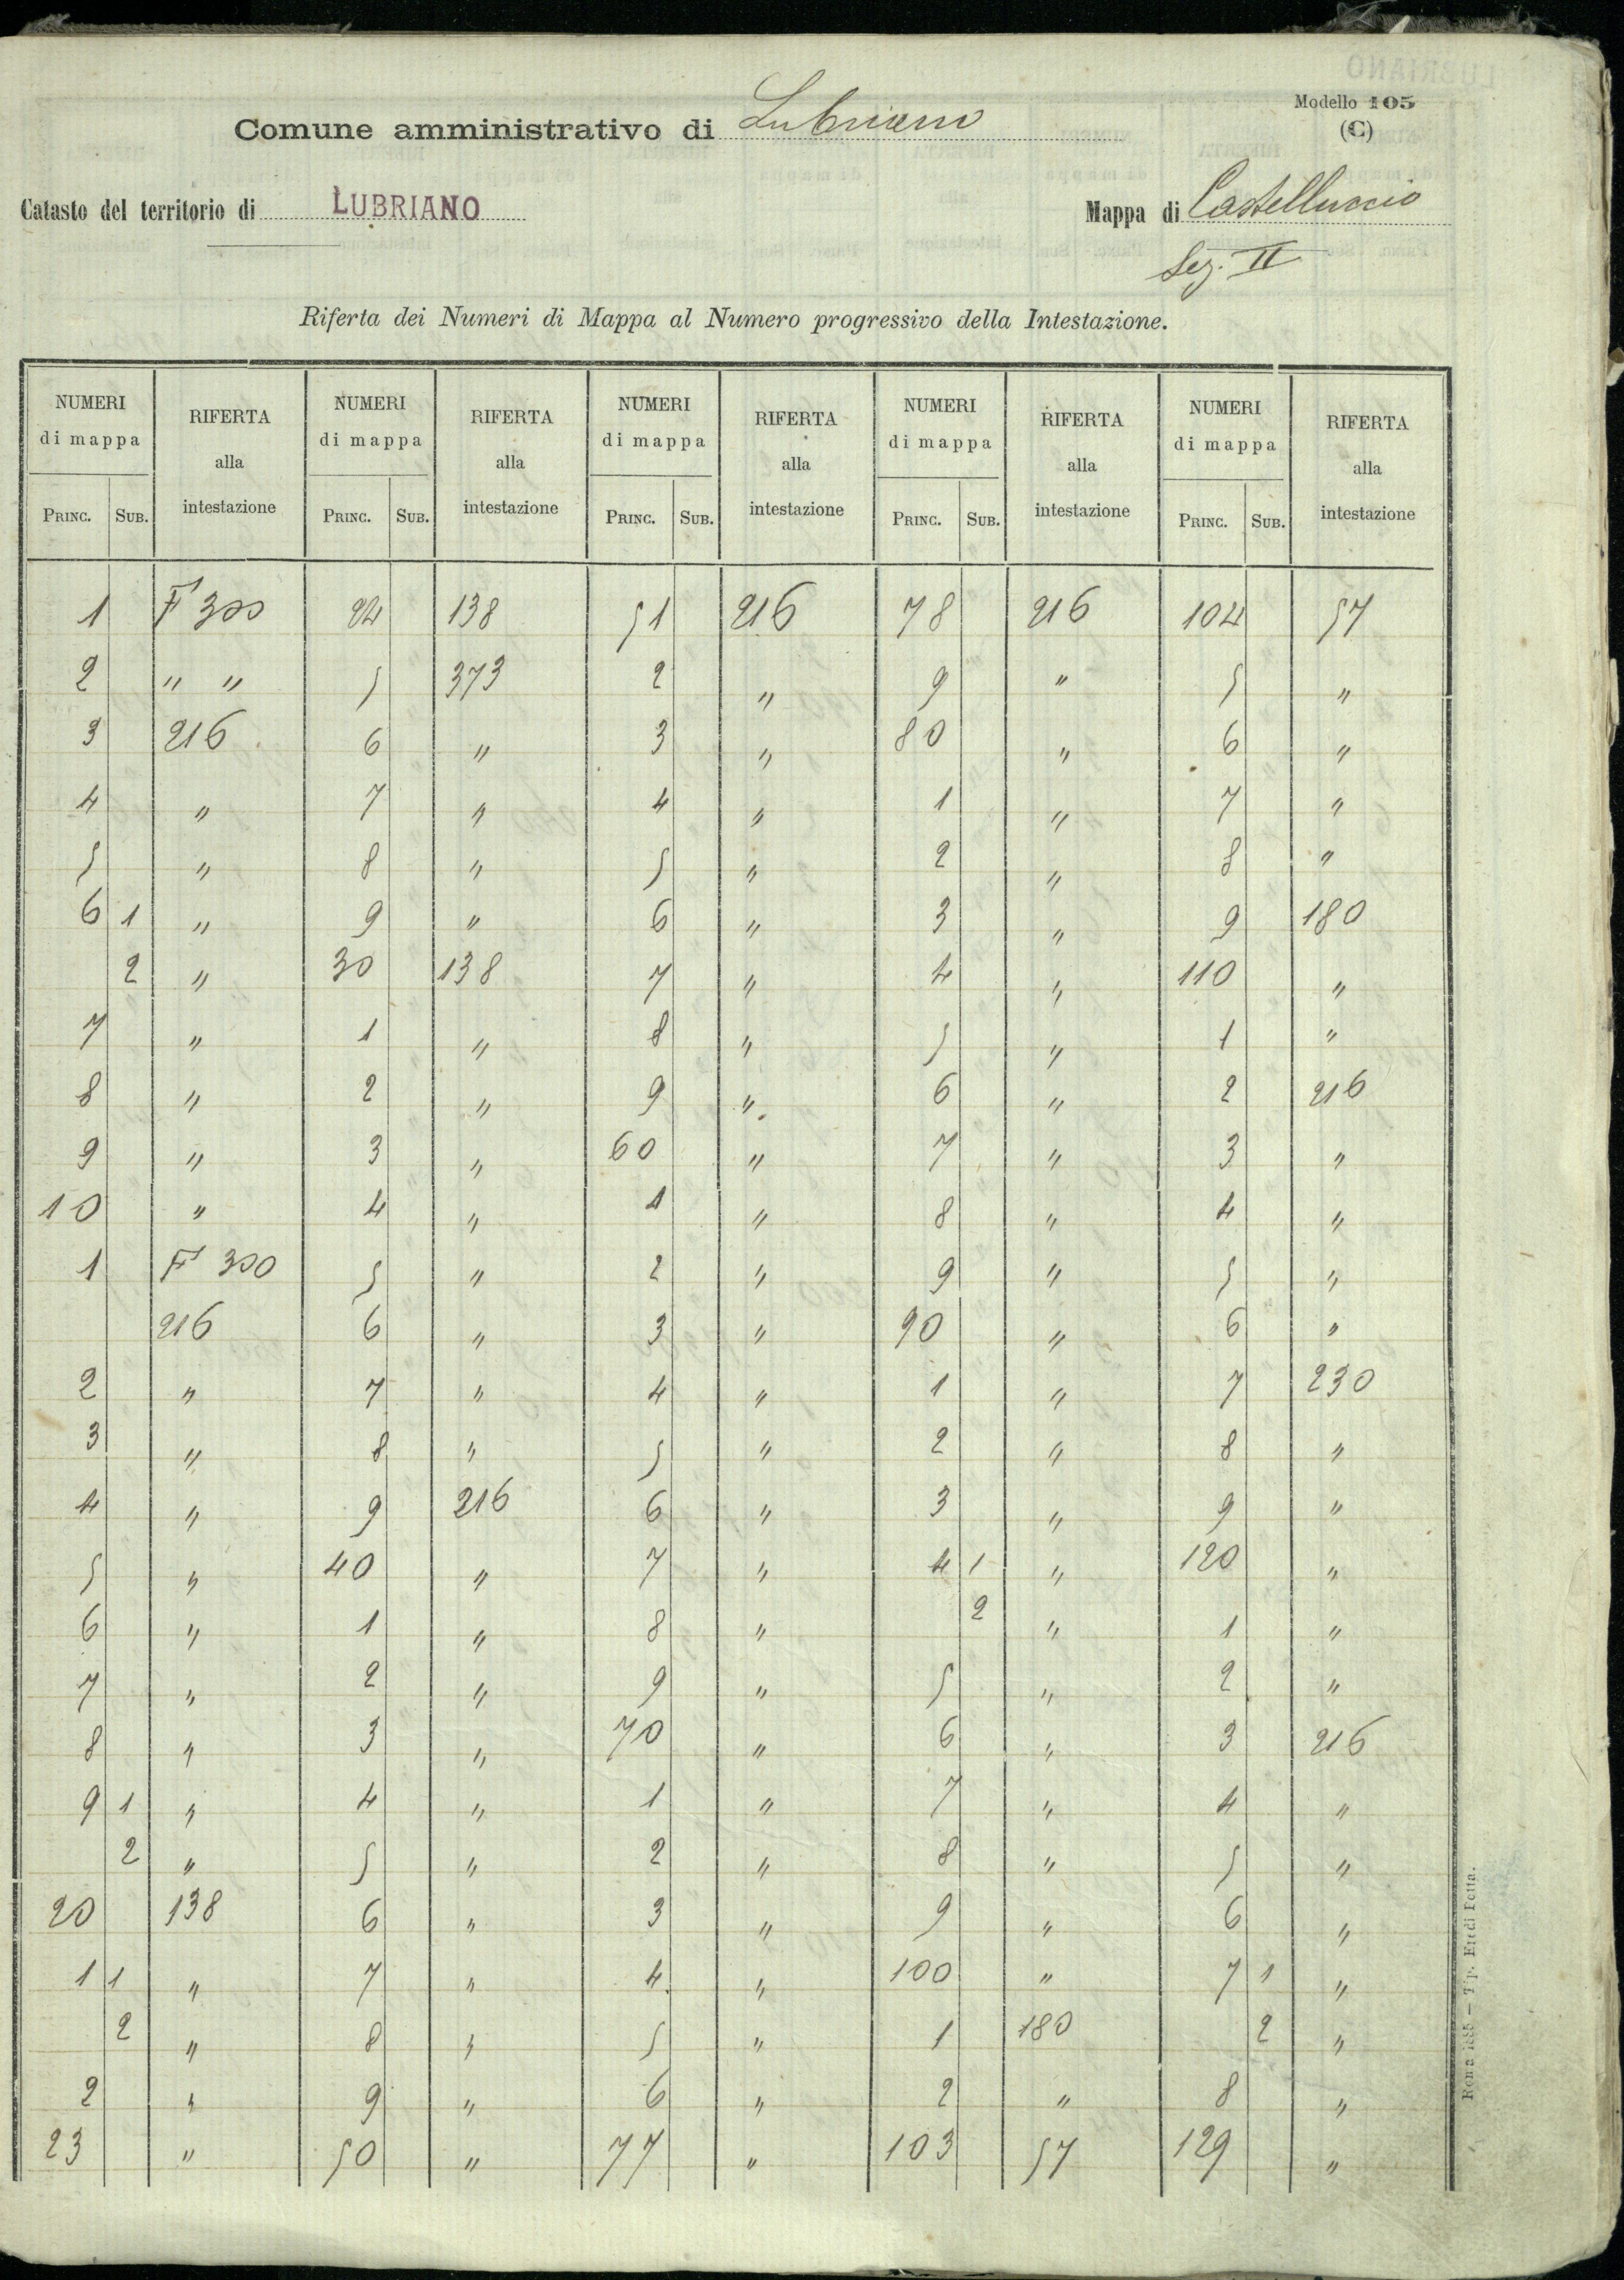 Modello 105
(C)
Comune amministrativo di Lubriano
Catasto del territorio di LUBRIANO
Mappa di Castelluccio
Sez. II
Riferta dei Numeri di Mappa al Numero progressivo della Intestazione.
NUMERI di mappa RIFERTA alla intestazione NUMERI di mappa RIFERTA alla intestazione NUMERI di mappa RIFERTA alla intestazione NUMERI di mappa RIFERTA alla intestazione NUMERI di mappa RIFERTA alla intestazione
PRINC. SUB. PRINC. SUB. PRINC. SUB. PRINC. SUB. PRINC. SUB.
1 F 300 24 138 51 216 78 216 104 57
2 " " 5 373 2 " 9 " 5 "
3 216 6 " 3 " 80 " 6 "
4 " 7 " 4 " 1 " 7 "
5 " 8 " 5 " 2 " 8 "
6 1 " 9 " 6 " 3 " 9 180
2 " 30 138 7 " 4 " 110 "
7 " 1 " 8 " 5 " 1 "
8 " 2 " 9 " 6 " 2 216
9 " 3 " 60 " 7 " 3 "
10 " 4 " 1 " 8 " 4 "
1 F 300 5 " 2 " 9 " 5 "
216 6 " 3 " 90 " 6 "
2 " 7 " 4 " 1 " 7 230
3 " 8 " 5 " 2 " 8 "
4 " 9 216 6 " 3 " 9 "
5 " 40 " 7 " 4 1 " 120 "
6 " 1 " 8 " 2 " 1 "
7 " 2 " 9 " 5 " 2 "
8 " 3 " 70 " 6 " 3 216
9 1 " 4 " 1 " 7 " 4 "
2 " 5 " 2 " 8 " 5 "
20 138 6 " 3 " 9 " 6 "
1 1 " 7 " 4 " 100 " 7 1 "
2 " 8 " 5 " 1 180 2 "
2 " 9 " 6 " 2 " 8 "
23 " 50 " 77 " 103 57 129 "
Roma 1885 — Tip. Eredi Botta.